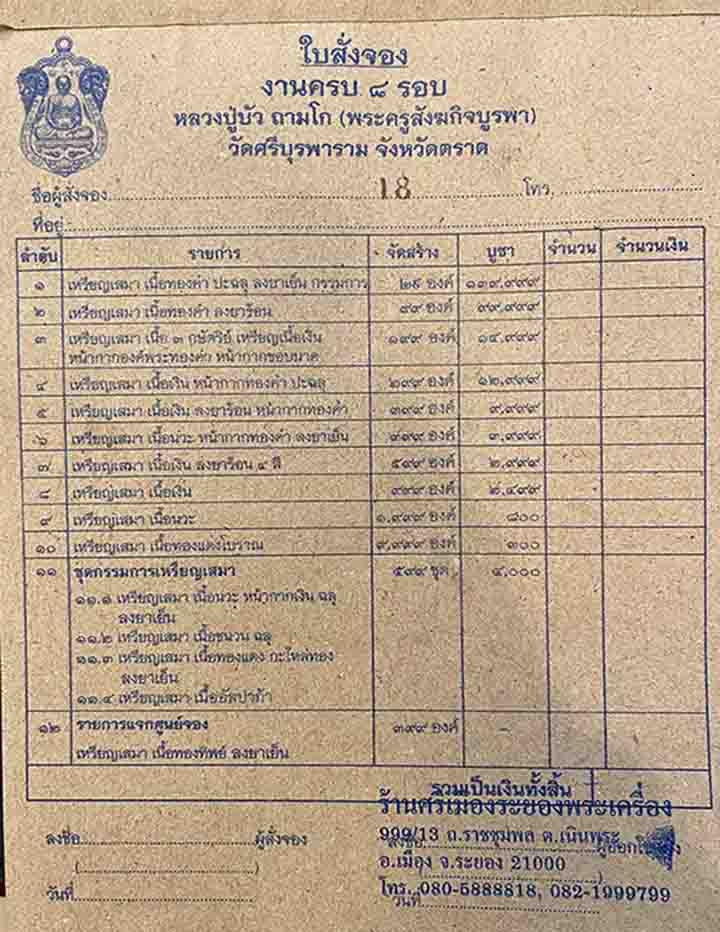 ใบสั่งจอง
งานครบ ๘ รอบ
หลวงปู่บัว ถามโก (พระครูสังฆกิจบูรพา)
วัดศรีบุรพาราม จังหวัดตราด
ชื่อผู้สั่งจอง 18 โทร.
ที่อยู่
ลำดับ รายการ จัดสร้าง บูชา จำนวน จำนวนเงิน
๑ เหรียญเสมา เนื้อทองคำ ปะฉลุ ลงยาเย็น กรรมการ ๒๕ องค์ ๑๓๙,๙๙๙
๒ เหรียญเสมา เนื้อทองคำ ลงยาร้อน ๙๙ องค์ ๙๙,๙๙๙
๓ เหรียญเสมา เนื้อ ๓ กษัตริย์ เหรียญเนื้อเงิน ๑๙๙ องค์ ๑๔,๙๙๙
หน้ากากองค์พระทองคำ หน้ากากขอบนาค
๔ เหรียญเสมา เนื้อเงิน หน้ากากทองคำ ปะฉลุ ๒๙๙ องค์ ๑๒,๙๙๙
๕ เหรียญเสมา เนื้อเงิน ลงยาร้อน หน้ากากทองคำ ๓๙๙ องค์ ๙,๙๙๙
๖ เหรียญเสมา เนื้อนวะ หน้ากากทองคำ ลงยาเย็น องค์
๗ เหรียญเสมา เนื้อเงิน ลงยาร้อน ๔ สี ๕๙๙ องค์ ๒,๙๙๙
๘ เหรียญเสมา เนื้อเงิน ๙๙๙ องค์ ๒,๔๙๙
๙ เหรียญเสมา เนื้อนวะ ๑,๙๙๙ องค์ ๘๐๐
๑๐ เหรียญเสมา เนื้อทองแดงโบราณ ๙,๙๙๙ องค์ ๓๐๐
๑๑ ชุดกรรมการเหรียญเสมา ๕๙๙ ชุด ๔,๐๐๐
๑๑.๑ เหรียญเสมา เนื้อนวะ หน้ากากเงิน ฉลุ
ลงยาเย็น
๑๑.๒ เหรียญเสมา เนื้อชนวน ฉลุ
๑๑.๓ เหรียญเสมา เนื้อทองแดง กะไหล่ทอง
ลงยาเย็น
๑๑.๔ เหรียญเสมา เนื้ออัลปาก้า
๑๒ รายการแจกศูนย์จอง ๓๙๙ องค์ -
เหรียญเสมา เนื้อทองทิพย์ ลงยาเย็น
รวมเป็นเงินทั้งสิ้น
ร้านศรีเมืองระยองพระเครื่อง
ลงชื่อ ผู้สั่งจอง
999/13 ถ.ราชชุมพล ต.เนินพระ
ลงชื่อ
อ.เมือง จ.ระยอง 21000
โทร. 080-5888818, 082-1999799
วันที่ วันที่